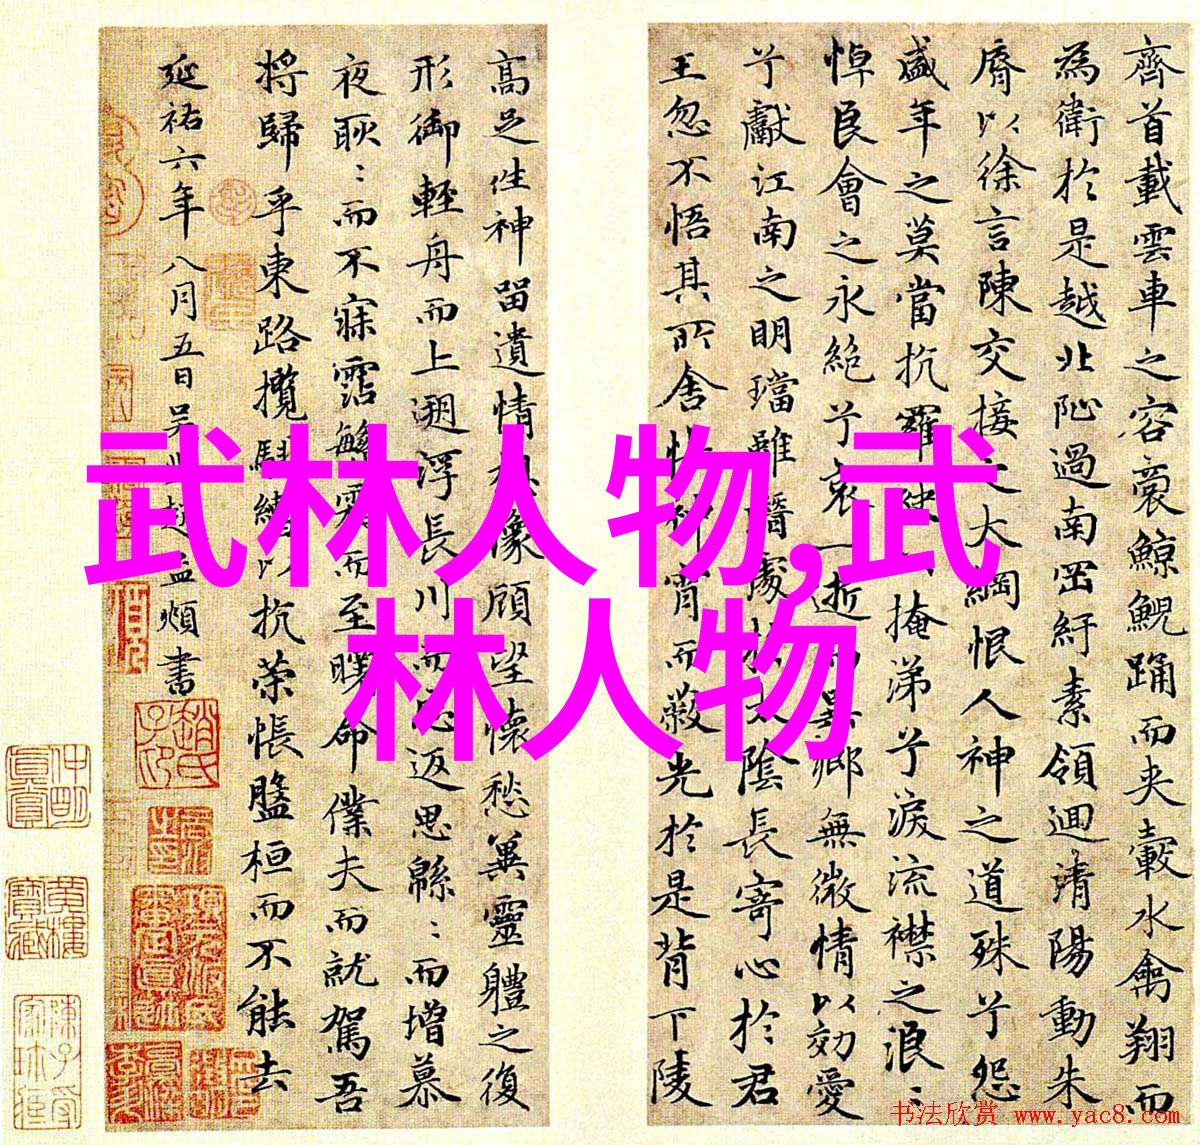 齊首載雲車之容裔鯨鯢踊而夾轂水禽翔而
為衛於是越北沚過南岡紆素領迴清陽動朱
脣以徐言陳交接之大綱恨人神之道殊兮怨
盛年之莫當抗羅袂以掩涕兮淚流襟之浪〻
悼良會之永絕兮哀一逝而異鄉無微情以効愛
兮獻江南之明璫雖潛處於太陰長寄心於君
王忽不悟其所舍悵神宵而蔽光於是背下陵
高足往神留遺情想像顧望懷愁冀靈體之復
形御輕舟而上遡浮長川而忘返思緜〻而增慕
夜耿〻而不寐霑繁霜而至曙命僕夫而就駕吾
將歸乎東路攬騑轡以抗策悵盤桓而不能去
延祐六年八月五日吳興趙孟頫書
武林人物,武
林人物
书法欣赏 www.yac8.com